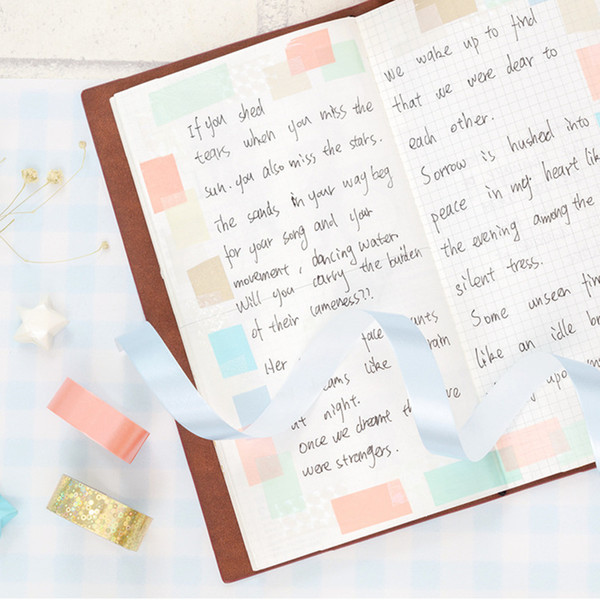 If you shed
tears when you miss the
sun. you also miss the stars.
the sands in your way beg
for your song and your
movement, dancing water.
Will you carry the burden
of their lameness??
Her face
like
at night.
Once we dreamt
were strangers.
We wake up to find
that we were dear to
each other.
Sorrow is hushed into
peace in my heart
the evening among the
silent tress.
Some unseen
like an idle
upon